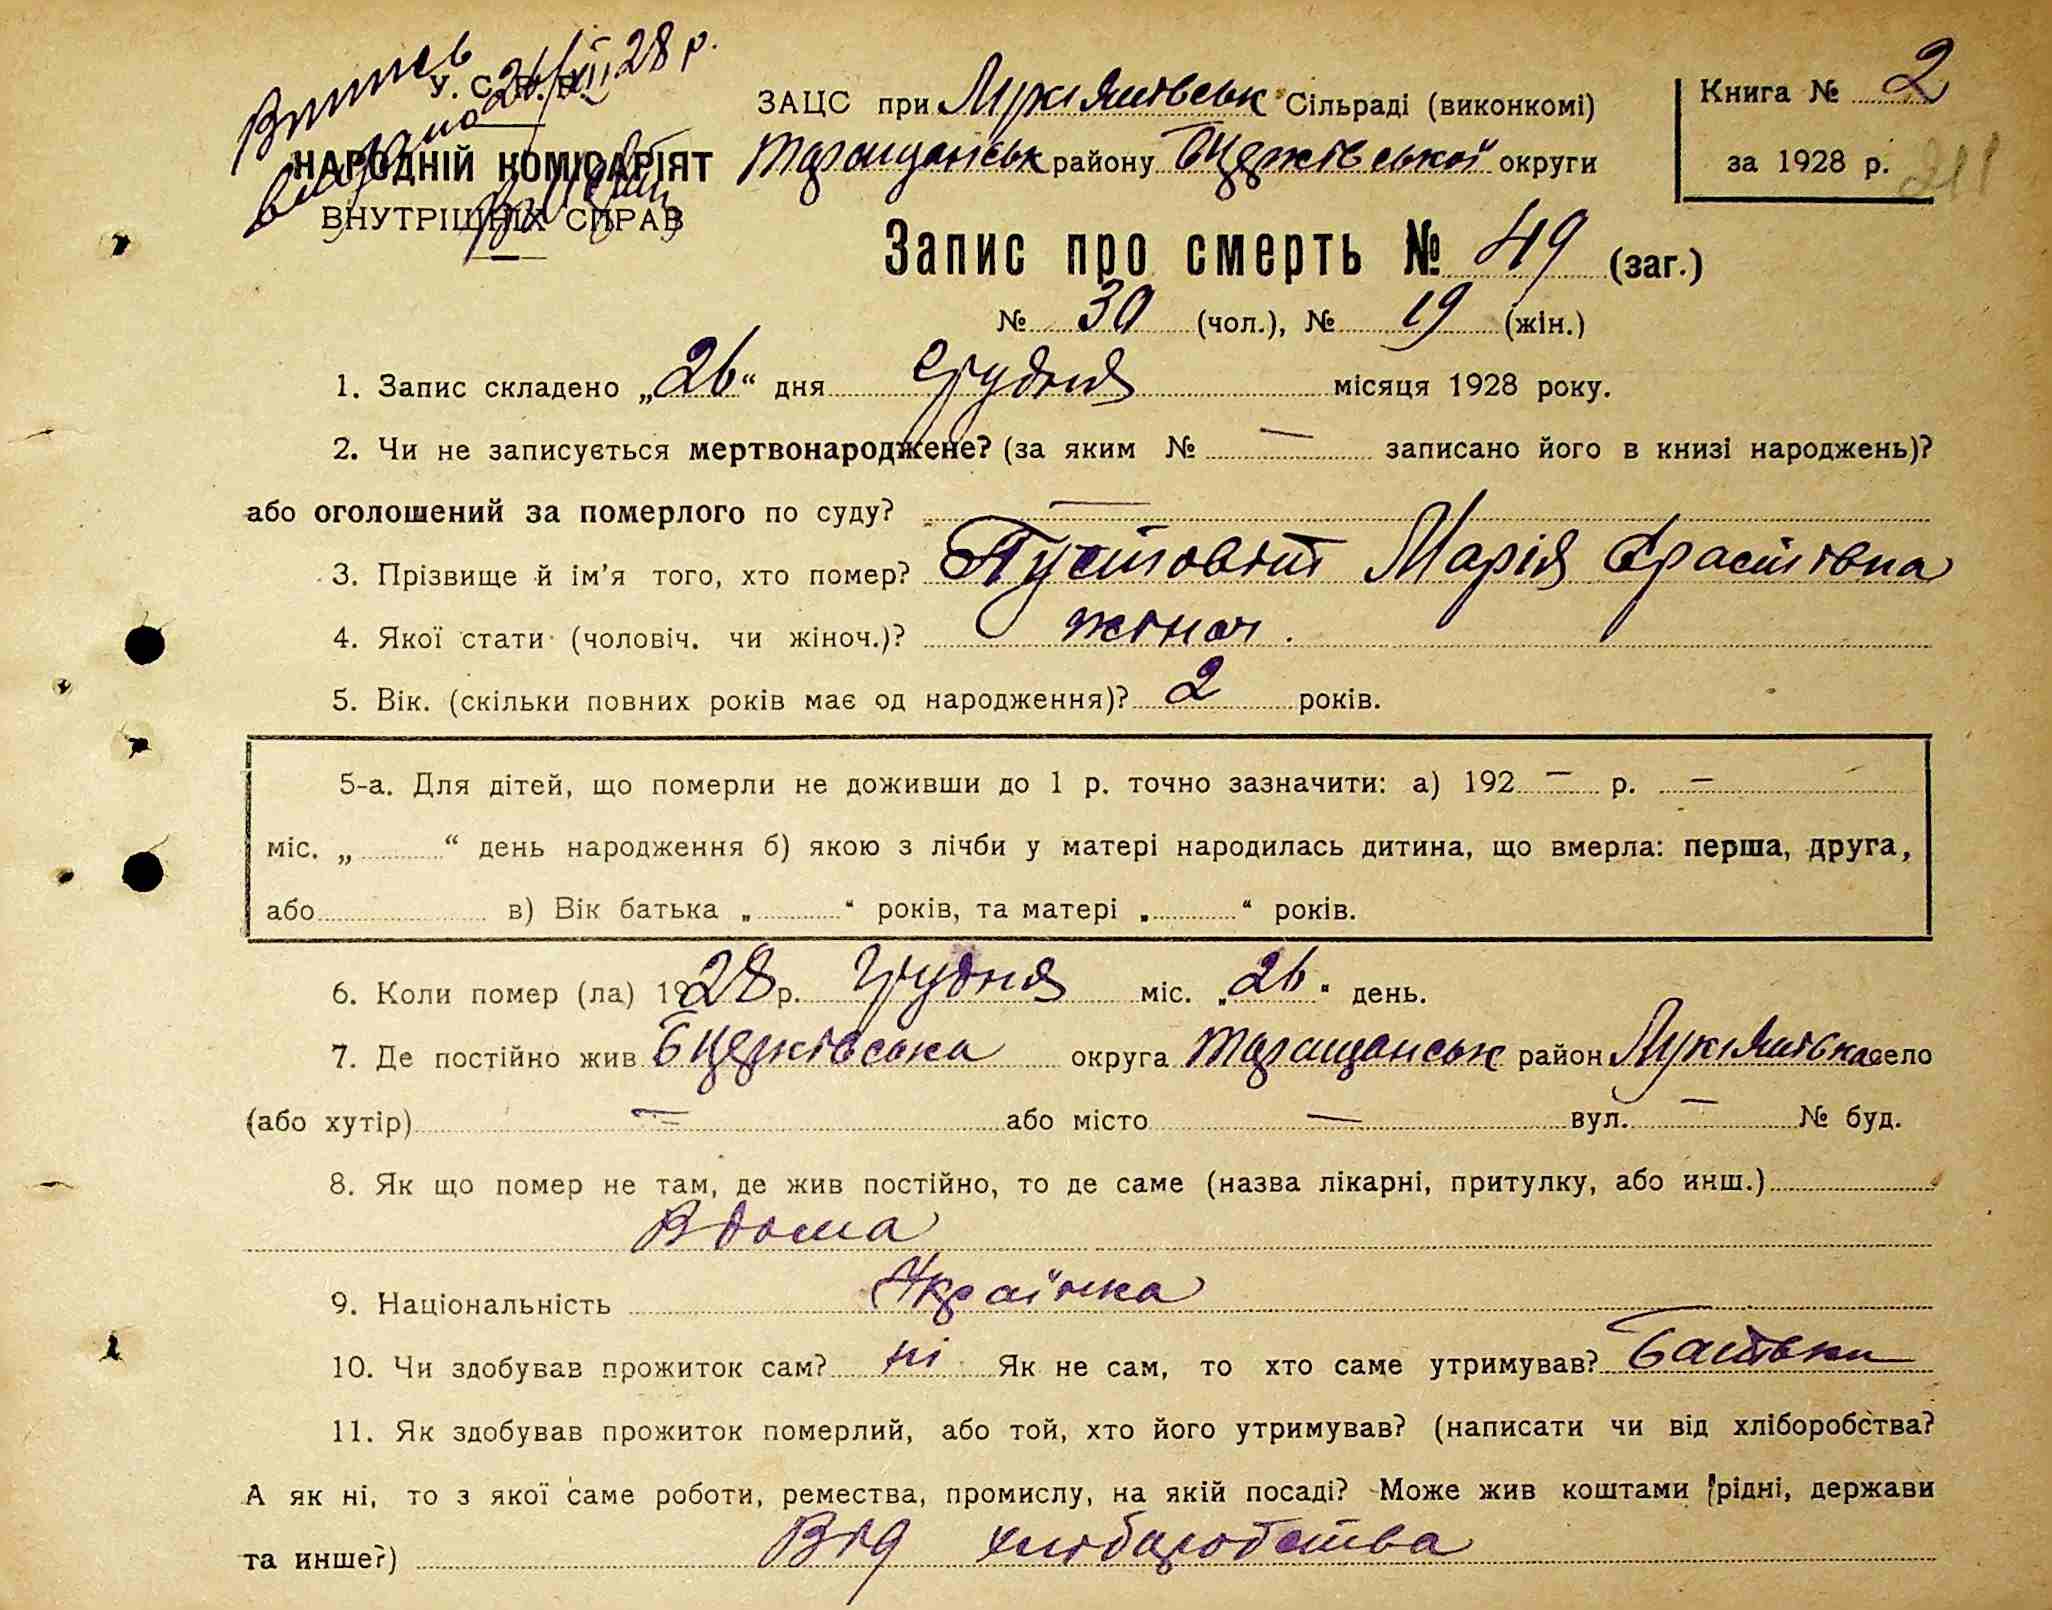 Витяг
видано 26/XII 28 р.
У. С. Р. Р.
НАРОДНІЙ КОМІСАРІЯТ
ВНУТРІШНІХ СПРАВ
ЗАЦС при Лукіянівськ Сільраді (виконкомі)
Таращанськ району Бцерківської округи
Книга № 2
за 1928 р. 211
Запис про смерть № 49 (заг.)
№ 30 (чол.), № 19 (жін.)
1. Запис складено „26“ дня Грудня місяця 1928 року.
2. Чи не записується мертвонароджене? (за яким № — записано його в книзі народжень)?
або оголошений за померлого по суду? —
3. Прізвище й ім’я того, хто помер? Пустовіт Марія Єрастівна
4. Якої стати (чоловіч. чи жіноч.)? жіноч.
5. Вік. (скільки повних років має од народження)? 2 років.
5-а. Для дітей, що померли не доживши до 1 р. точно зазначити: а) 192 — р. —
міс. „ “ день народження б) якою з лічби у матері народилась дитина, що вмерла: перша, друга,
або в) Вік батька „ “ років, та матері „ “ років.
6. Коли помер (ла) 1928 р. Грудня міс. „26“ день.
7. Де постійно жив Бцерківська округа Таращанськ район Лукіянівка село
(або хутір) — або місто — вул. — № буд.
8. Як що помер не там, де жив постійно, то де саме (назва лікарні, притулку, або инш.)
Вдома
9. Національність Українка
10. Чи здобував прожиток сам? ні Як не сам, то хто саме утримував? Батьки
11. Як здобував прожиток померлий, або той, хто його утримував? (написати чи від хліборобства?
А як ні, то з якої саме роботи, ремества, промислу, на якій посаді? Може жив коштами рідні, держави
та инше?) Від хліборобства